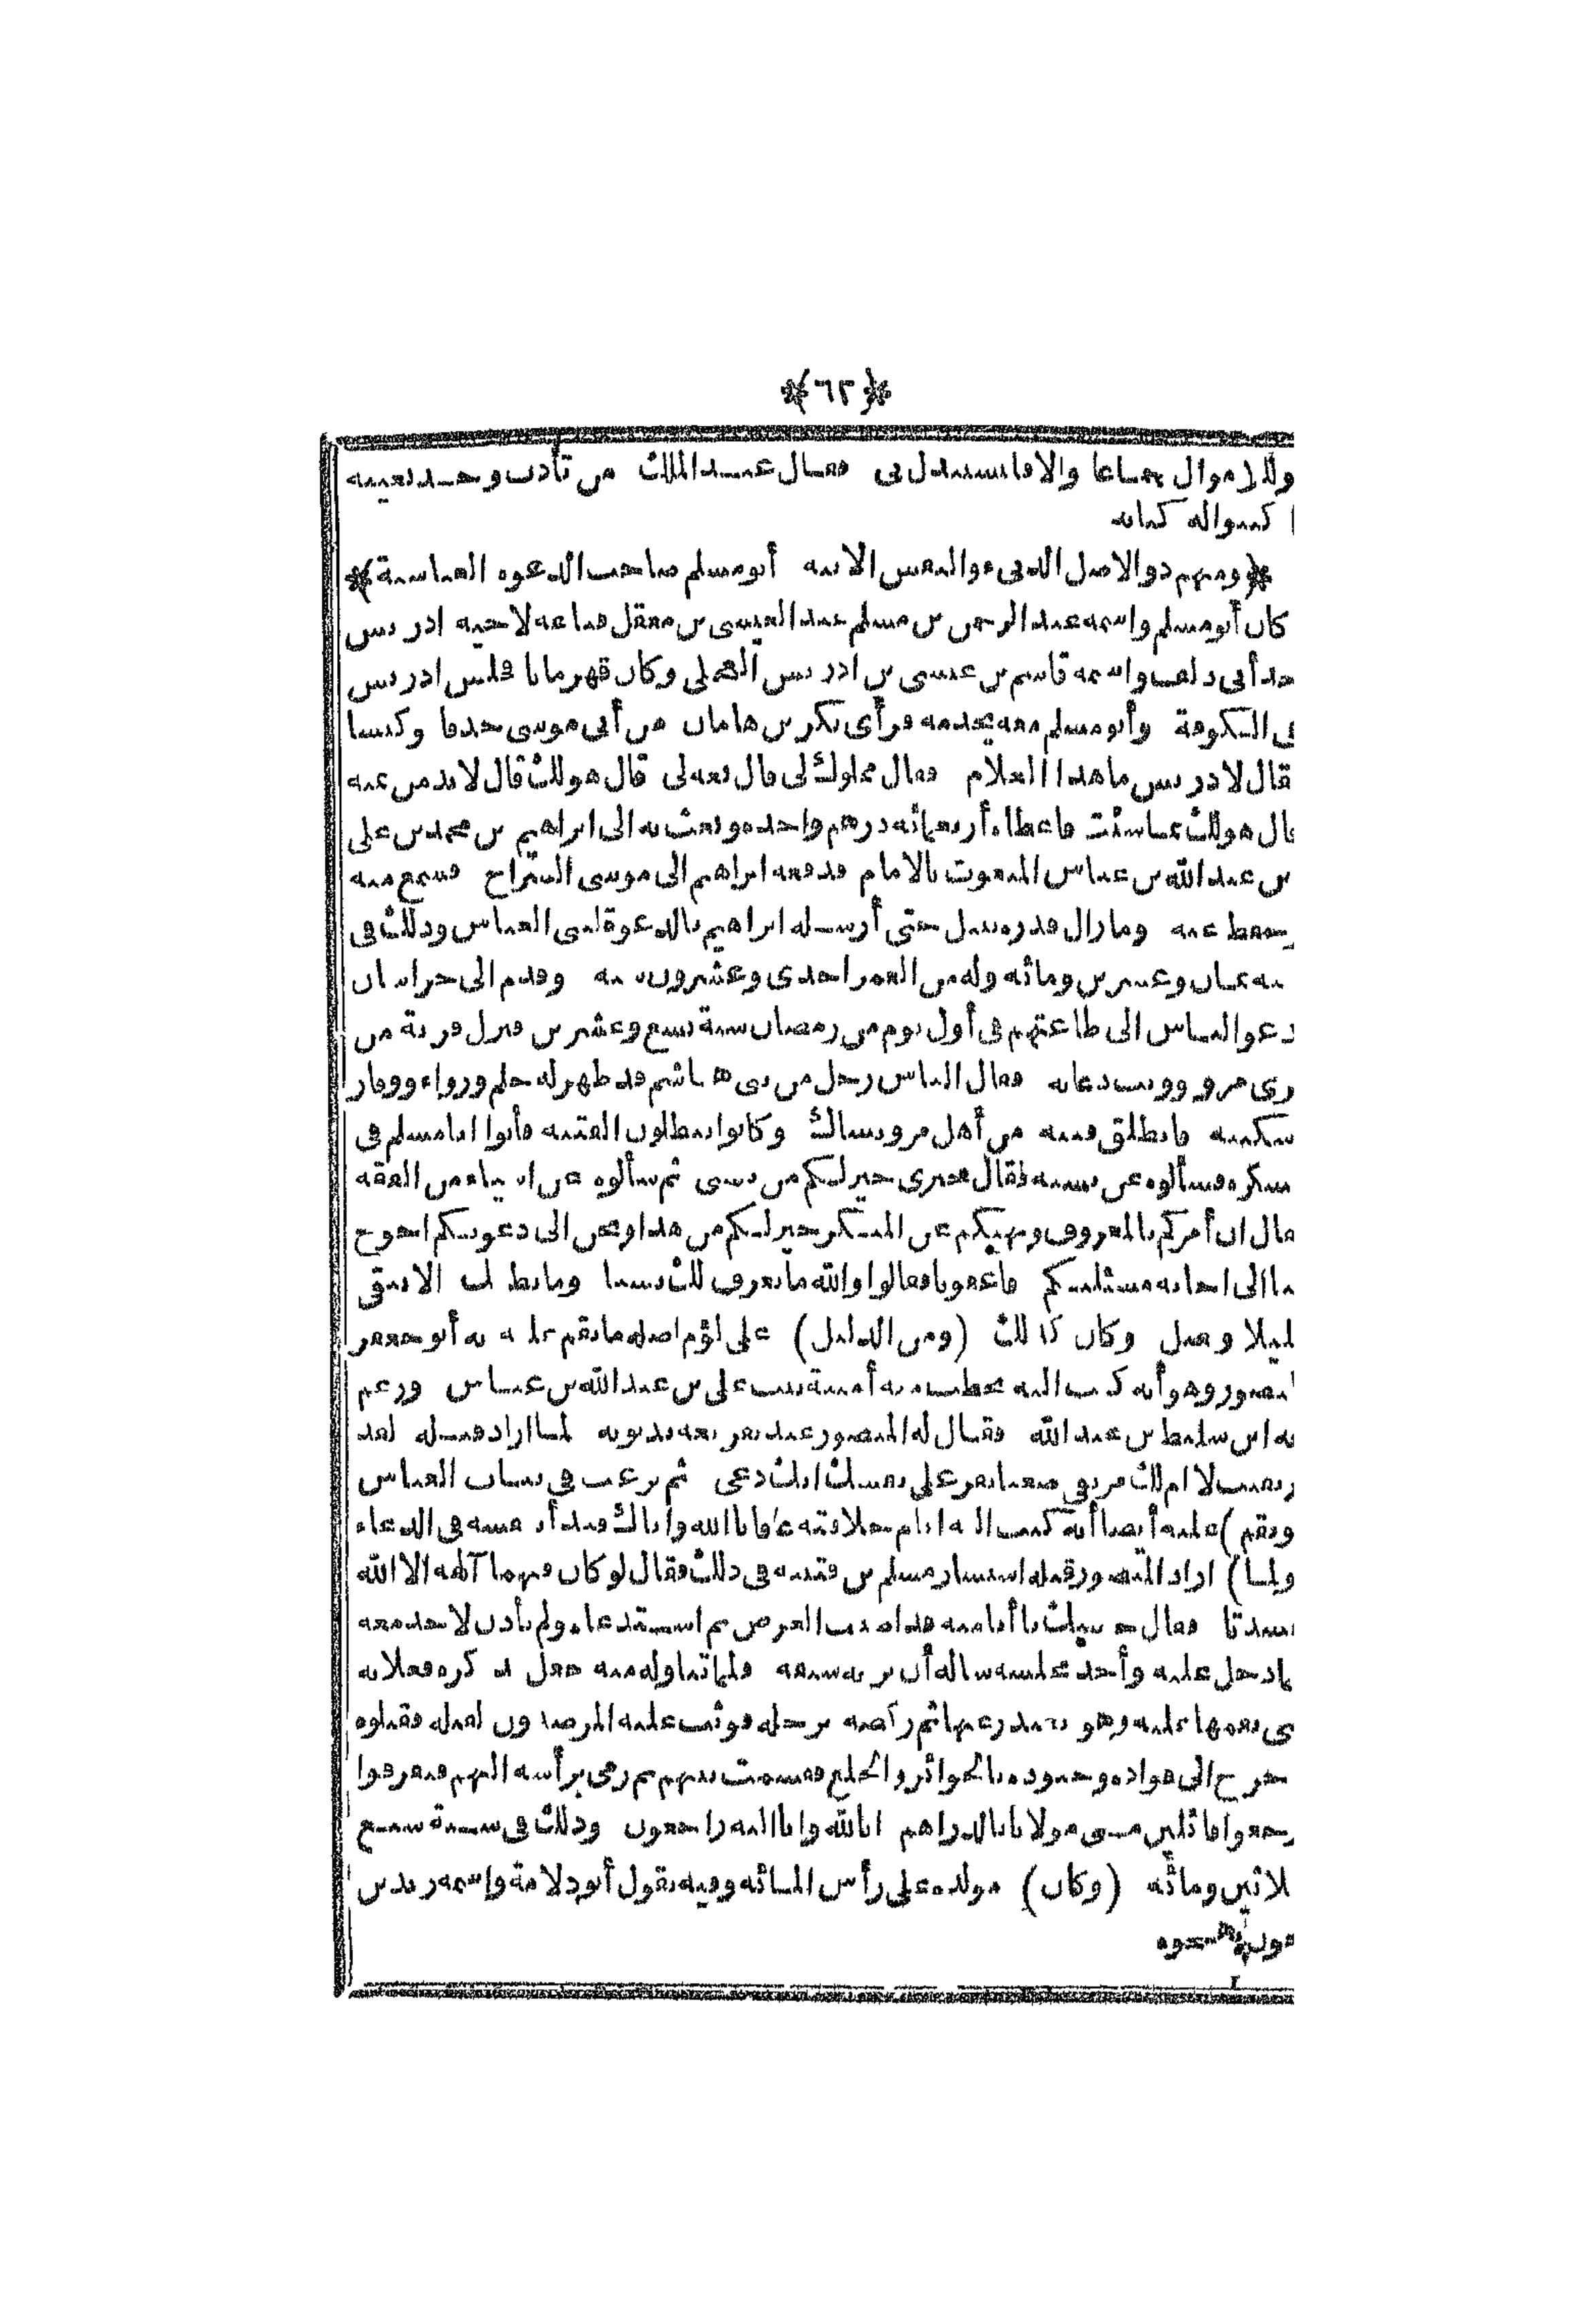 ﴿٦٢﴾
وللاموال جماعا والا فاستبدل بى فقال عبد الملك من تأدب وحد نعيبه
اكتبوا له كتابه
﴿ومنهم ذو الاصل الدنىء والنفس الابيه أبو مسلم صاحب الدعوه العباسية﴾
كان أبو مسلم واسمه عبد الرحمن بن مسلم عبد العيسى بن معقل فباعه لاخيه ادريس
جد أبى دلف واسمه قاسم بن عيسى بن ادريس العجلى وكان قهرمانا فحبس ادريس
فى الكوفة وأبو مسلم معه يخدمه فرأى بكر بن هامان من أبى موسى حذقا وكيسا
قال لادريس ما هذا الغلام فقال مملوك لى قال بعه لى قال هو لك قال لا بد من ثمنه
قال هو لك بما شئت فاعطاه أربعمائه درهم واخذه وبعث به الى ابراهيم بن محمد بن على
بن عبد الله بن عباس المنعوت بالامام فدفعه ابراهيم الى موسى السراج فسمع منه
وحفظ عنه وما زال قدره ينبل حتى أرسله ابراهيم بالدعوة لبنى العباس وذلك فى
سنه ثمان وعشرين ومائه وله من العمر احدى وعشرون سنه وقدم الى خراسان
يدعو الناس الى طاعتهم فى أول يوم من رمضان سنة تسع وعشرين فنزل قرية من
قرى مرو وبث دعاته فقال الناس رجل من بنى هاشم قد ظهر له حلم ورواء ووقار
سكينه فانطلق فتيه من أهل مرو نساك وكانوا يطلبون الفقيه فأتوا ابا مسلم فى
عسكره فسألوه عن نسبه فقال خبرى خير لكم من نسبى ثم سألوه عن اشياء من الفقه
فقال ان أمركم بالمعروف ونهيكم عن المنكر خير لكم من هذا ونحن الى دعوتكم احوج
منا الى اجابه مسئلتكم فاعفونا فقالوا والله ما نعرف لك نسبا وما نظنك الا تبقى
قليلا وتقتل وكان كذلك (ومن الدليل) على لؤم اصله ما نقم عليه به أبو جعفر
المنصور وهو أنه كتب اليه يخطب منه أمينة بنت على بن عبد الله بن عباس وزعم
أنه ابن سليط بن عبد الله فقال له المنصور عند تقريعه بذنوبه لما اراد قتله لقد
ارتقيت لا ام لك مرتقى صعبا تقر على نفسك انك دعى ثم ترغب فى بنات العباس
(ونقم) عليه أيضا أنه كتب اليه ايام خلافته عافانا الله واياك فبدأ بنفسه فى الدعاء
(ولما) اراد المنصور قتله استشار مسلم بن قتيبه فى ذلك فقال لو كان فيهما آلهه الا الله
لفسدتا فقال حسبك يا أبا أميه هذا صدف الغرض ثم استدعاه ولم يأذن لاحد معه
فلما دخل عليه وأخذ مجلسه سأله أن يريه سيفه فلما تناوله منه جعل يذكره فعلاته
التى نقمها عليه وهو يعتذر عنها ثم راصه برجله فوثب عليه المرصدون لقتله فقتلوه
وخرج الى قواده وجنوده بالجوائز والخلع فقسمت بينهم ثم رمى برأسه اليهم فتفرقوا
ورجعوا قائلين قتل مولانا بالدراهم انا لله وانا اليه راجعون وذلك فى سنة سبع
ثلاثين ومائه (وكان) مولده على رأس المائه وفيه يقول أبو دلامة واسمه زيد بن